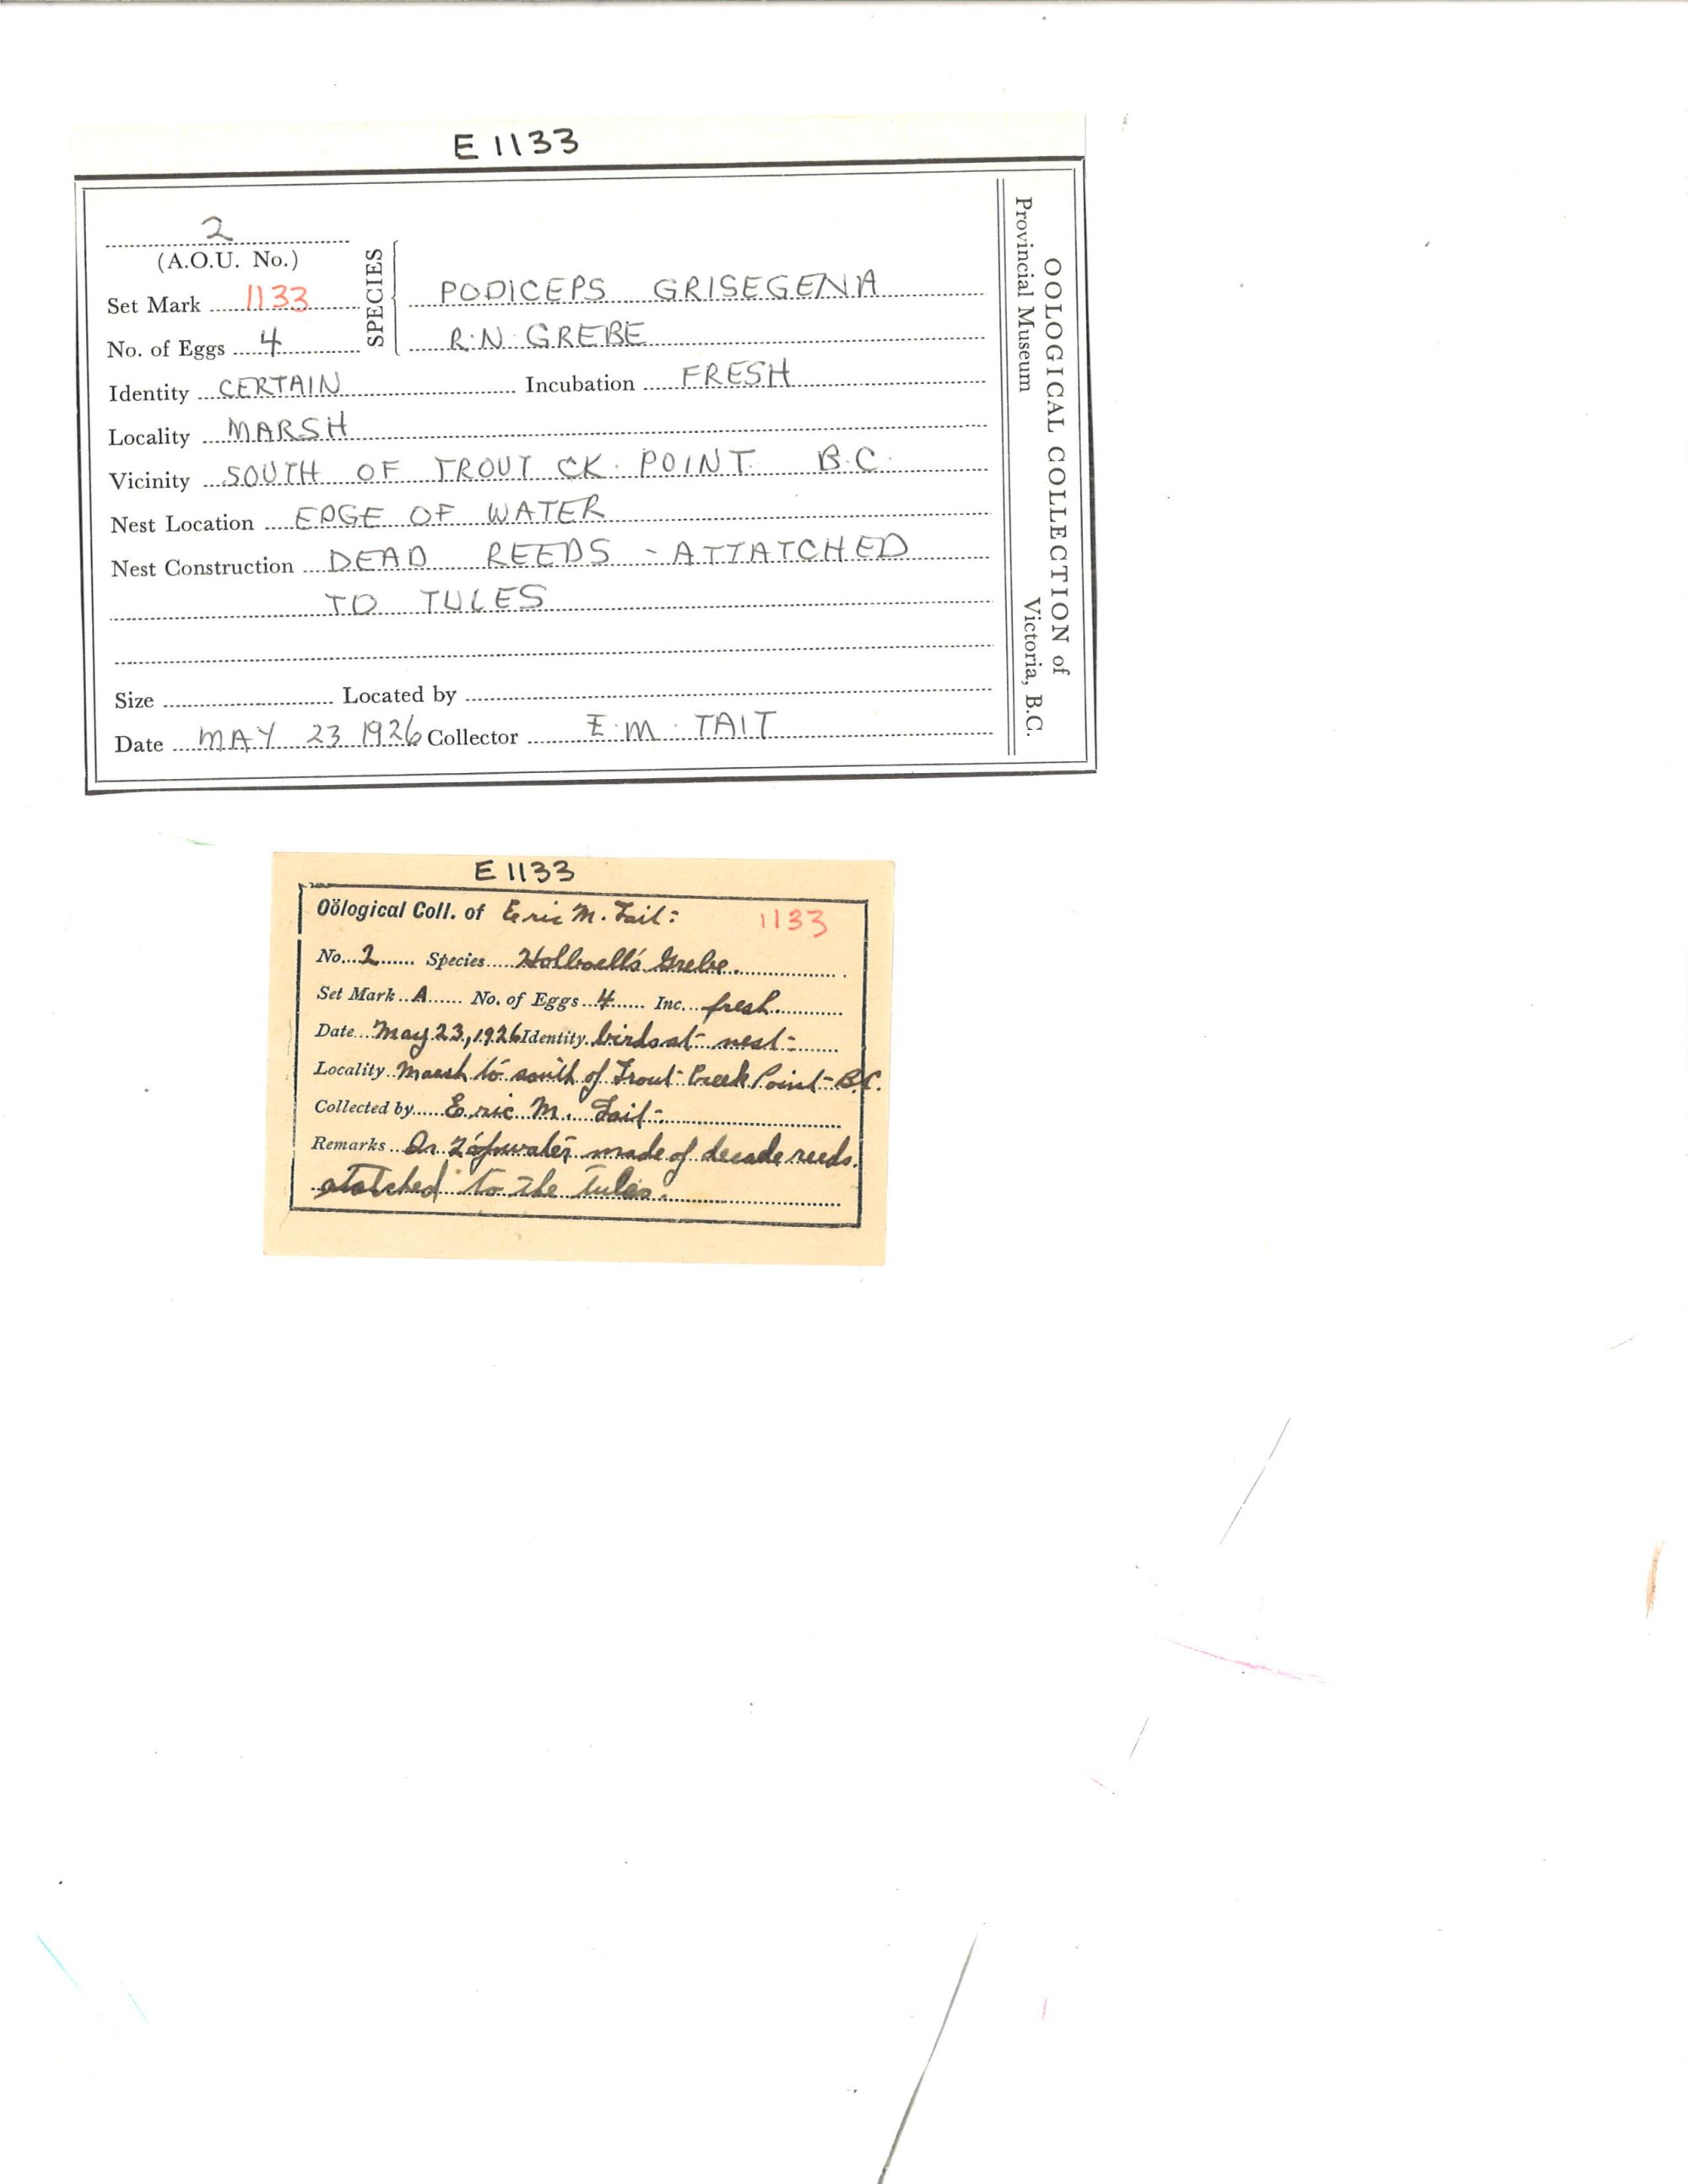 E 1133
2
(A.O.U. No.)
Set Mark 1133
No. of Eggs 4
SPECIES
PODICEPS GRISEGENA
R.N. GREBE
Identity CERTAIN Incubation FRESH
Locality MARSH
Vicinity SOUTH OF TROUT CK. POINT B.C.
Nest Location EDGE OF WATER
Nest Construction DEAD REEDS - ATTATCHED
TO TULES
Size Located by
Date MAY 23 1926 Collector E.M. TAIT
OOLOGICAL COLLECTION of
Provincial Museum Victoria, B.C.
E 1133
Oölogical Coll. of Eric M. Tait:
1133
No. 2 Species Holboell's Grebe.
Set Mark A No. of Eggs 4 Inc. fresh.
Date May 23, 1926 Identity birds at nest-
Locality Marsh to south of Trout Creek Point - B.C.
Collected by Eric M. Tait-
Remarks water made of decade reeds.
atatched to the tules.